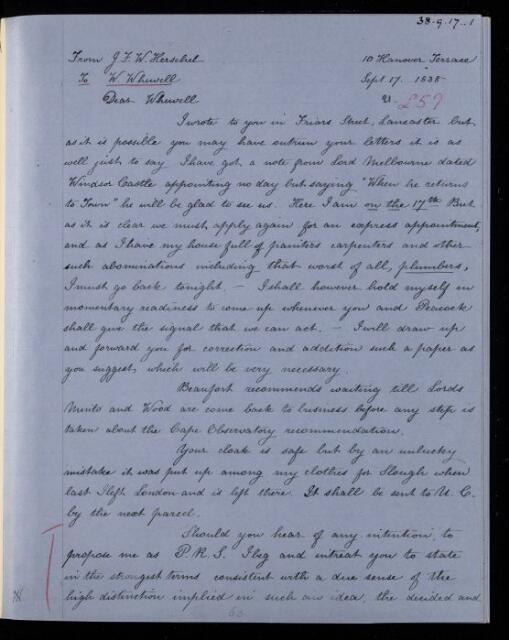 38-9.17..1
From J.F.W. Herschel 10 Hanover Terrace
To W. Whewell Sept 17. 1838
Dear Whewell 21. £59
I wrote to you in Friars Street, Lancaster but
as it is possible you may have outrun your letters it is as
well just to say I have got a note from Lord Melbourne dated
Windsor Castle appointing no day but saying "When he returns
to Town" he will be glad to see us. Here I am on the 17th But
as it is clear we must apply again for an express appointment,
and as I have my house full of painters carpenters and other
such abominations including that worst of all, plumbers,
I must go back tonight. — I shall however hold myself in
momentary readiness to come up whenever you and Peacock
shall give the signal that we can act. — I will draw up
and forward you for correction and addition such a paper as
you suggest, which will be very necessary.
Beaufort recommends waiting till Lords
Minto and Wood are come back to business before any step is
taken about the Cape Observatory recommendation.
Your cloak is safe but by an unlucky
mistake it was put up among my clothes for Slough when
last I left London and is left there. It shall be sent to U. C.
by the next parcel.
Should you hear of any intention to
propose me as P.R.S. I beg and intreat you to state
in the strongest terms consistent with a due sense of the
high distinction implied in such an idea, the decided and
63